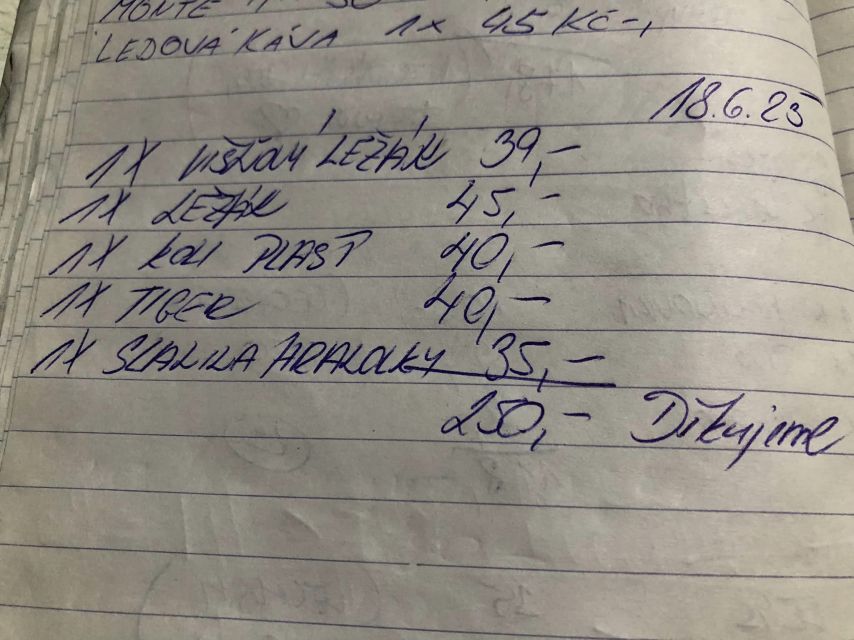 MONTE
LEDOVÁ KÁVA 1x 45 Kč-,
18.6.25
1X VIŠŇOVÝ LEŽÁK 39,-
1X LEŽÁK 45,-
1X PLAST 40,-
1X TIGER 40,-
1X SLANINA 35,-
250,- Děkujeme